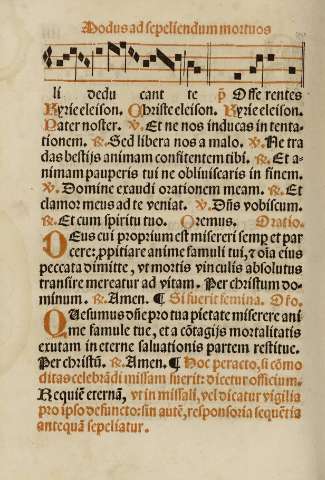 Modus ad sepeliendum mortuos
li dedu cant te ꝓ Offe rentes
Kyrie eleison. Christe eleison. Kyrie eleison.
Pater noster. ℣. Et ne nos inducas in tenta-
tionem. ℟. Sed libera nos a malo. ℣. Ne tra
das bestijs animam confitentem tibi. ℟. Et a-
nimam pauperis tui ne obliuiscaris in finem.
℣. Domine exaudi orationem meam. ℟. Et
clamor meus ad te veniat. ℣. Dñs vobiscum.
℟. Et cum spiritu tuo. Oremus. Oratio.
DEus cui proprium est misereri semꝑ et par
cere: ꝓpitiare anime famuli tui, ⁊ oĩa eius
peccata dimitte, vt mortis vinculis absolutus
transire mereatur ad vitam. Per christum do-
minum. ℟. Amen. ¶ Si fuerit femina. Oŕo.
QUesumus dñe pro tua pietate miserere ani
me famule tue, et a cõtagijs mortalitatis
exutam in eterne saluationis partem restitue.
Per christũ. ℟. Amen. ¶ Hoc peracto, si cõmo
ditas celebrãdi missam fuerit: dicetur officium.
Requiẽ eternã, vt in missali, vel dicatur vigilia
pro ipso defuncto: sin autẽ, responsoria sequẽtia
antequã sepeliatur.